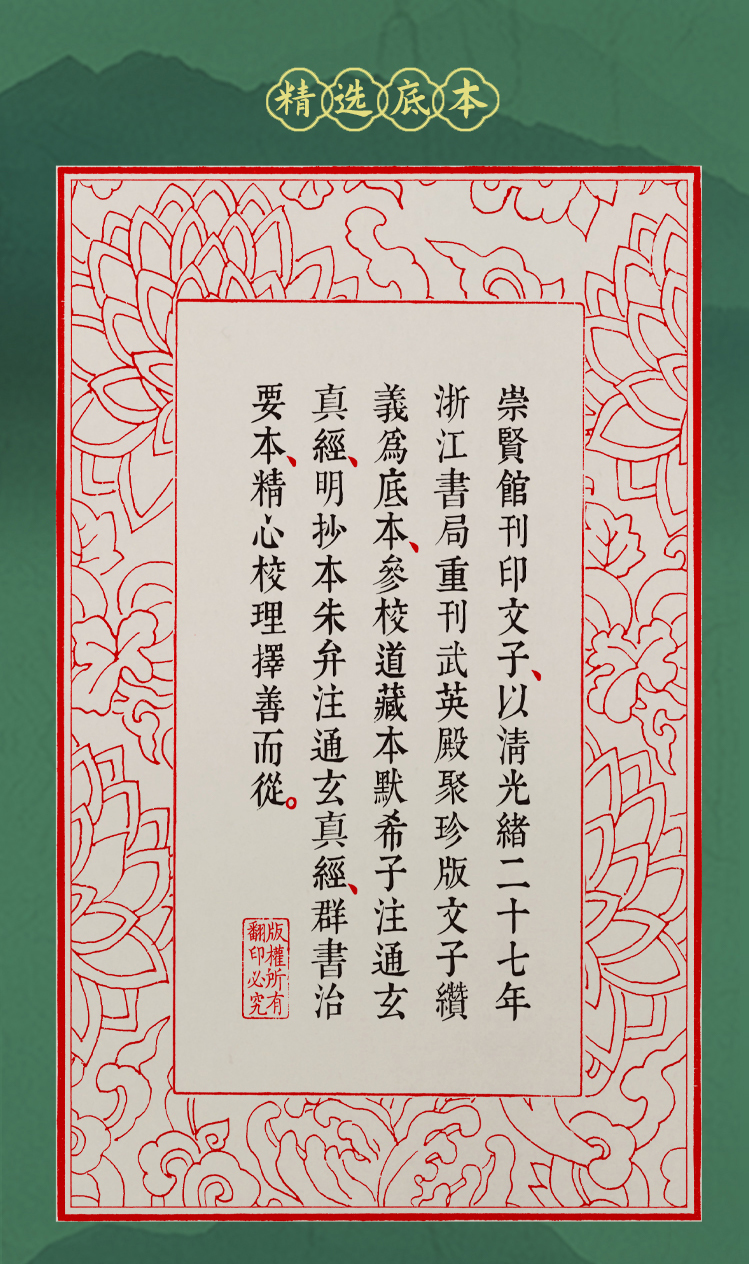 精选底本
崇賢館刊印文子、以清光緒二十七年
浙江書局重刊武英殿聚珍版文子纘
義爲底本、參校道藏本默希子注通玄
真經、明抄本朱弁注通玄真經、群書治
要本、精心校理擇善而從。
版權所有
翻印必究